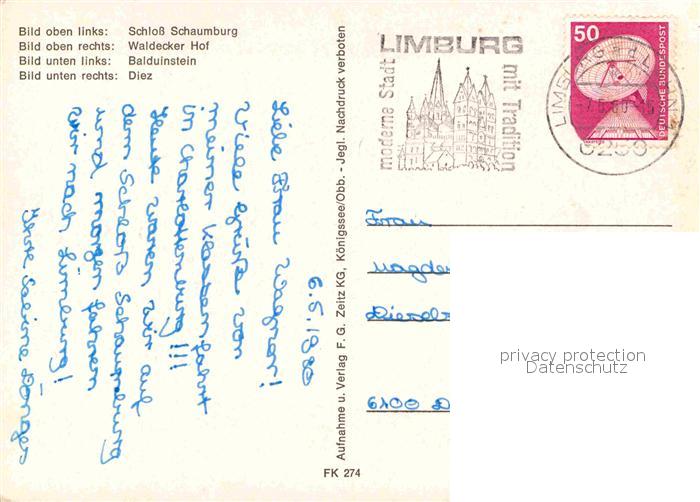 Bild oben links: Schloß Schaumburg
Bild oben rechts: Waldecker Hof
Bild unten links: Balduinstein
Bild unten rechts: Diez
6.5.1980
Liebe Frau Wagner!
Viele Grüße von
meiner Klassenfahrt
in Charlottenburg!!!
Heute waren wir auf
dem Schloß Schaumburg
und morgen fahren
wir nach Limburg!
Ihre Sabine
Aufnahme u. Verlag F. G. Zeitz KG, Königssee/Obb. - Jegl. Nachdruck verboten
FK 274
moderne Stadt
LIMBURG
mit Tradition
50
DEUTSCHE BUNDESPOST
Frau
Magde
6100 D
privacy protection
Datenschutz